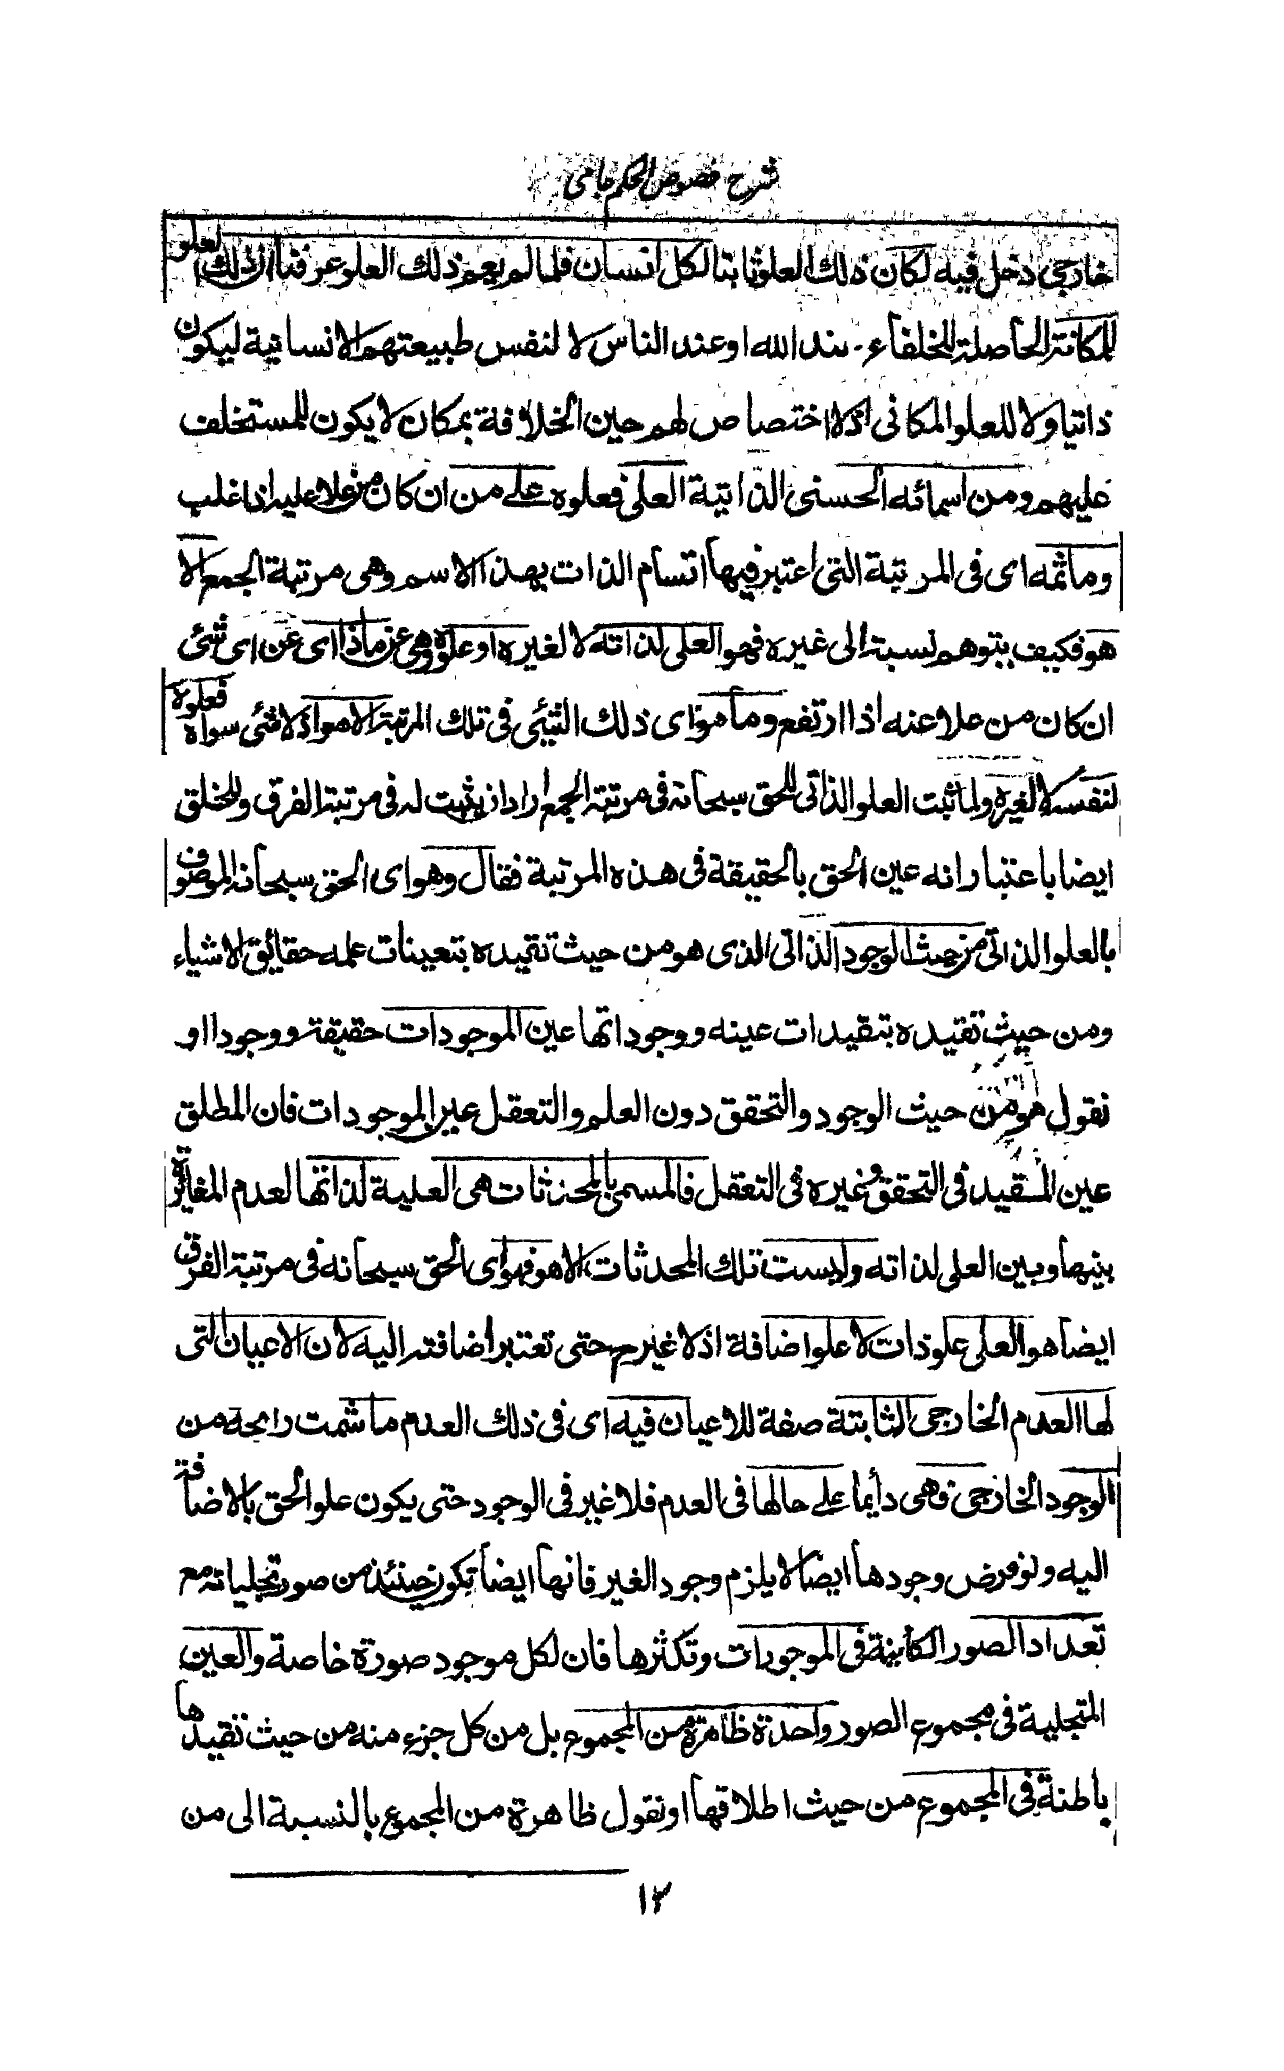 شرح فصوص الحكم جامي
خارجى دخل فيه لكان ذلك العلو ثابتا لكل انسان فلما لم يعم ذلك العلو عرفنا ان ذلك العلو
للمكانة الحاصلة للخلفاء عند الله او عند الناس لا لنفس طبيعتهم الانسانية ليكون
ذاتيا ولا للعلو المكانى اذ لا اختصاص لهم حين الخلافة بمكان لا يكون للمستخلف
عليهم ومن اسمائه الحسنى الذاتية العلى فعلوه على من ان كان من علا عليه اذا غلب
وما ثمه اى فى المرتبة التى اعتبر فيها اتسام الذات بهذا الاسم وهى مرتبة الجمع الا
هو فكيف يتوهم نسبته الى غيره فهو العلى لذاته لا لغيره او علوه وهى عن ماذا اى عن اى شئ
ان كان من علا عنه اذا ارتفع وما هو اى ذلك الشئى فى تلك المرتبة الا هو اذ لا شئى سواه فعلوه
لنفسه لا لغيره ولما ثبت العلو الذاتى للحق سبحانه فى مرتبة الجمع اراد ان يثبت له فى مرتبة الفرق وللخلق
ايضا باعتبار انه عين الحق بالحقيقة فى هذه المرتبة فقال وهو اى الحق سبحانه الموصوف
بالعلو الذاتى من حيث الوجود الذاتى الذى هو من حيث تقيده بتعينات علمه حقائق الاشياء
ومن حيث تقيده بتقيدات عينه ووجوداتها عين الموجودات حقيقة ووجودا او
نقول هو من حيث الوجود والتحقق دون العلم والتعقل عين الموجودات فان المطلق
عين المقيد فى التحقق وغيره فى التعقل فالمسمى بالمحدثات هى العلية لذاتها لعدم المغايرة
بينها وبين العلى لذاته وليست تلك المحدثات الا هو فهو اى الحق سبحانه فى مرتبة الفرق
ايضا هو العلى علو ذات لا علو اضافة اذ لا غير ثم حتى تعتبر اضافته اليه لان الاعيان التى
لها العدم الخارجى الثابتة صفة للاعيان فيه اى فى ذلك العدم ما شمت رايحة من
الوجود الخارجى فهى دأيما على حالها فى العدم فلا غير فى الوجود حتى يكون علو الحق بالاضافة
اليه ولو فرض وجودها ايضا لا يلزم وجود الغير فانها ايضا تكون حينئذ من صور تجلياته مع
تعداد الصور الكأينة فى الموجودات وتكثرها فان لكل موجود صورة خاصة والعين
المتجلية فى مجموع الصور واحدة ظاهرة من المجموع بل من كل جزء منه من حيث تقيدها
باطنة فى المجموع من حيث اطلاقها او نقول ظاهرة من المجمع بالنسبة الى من
١٣